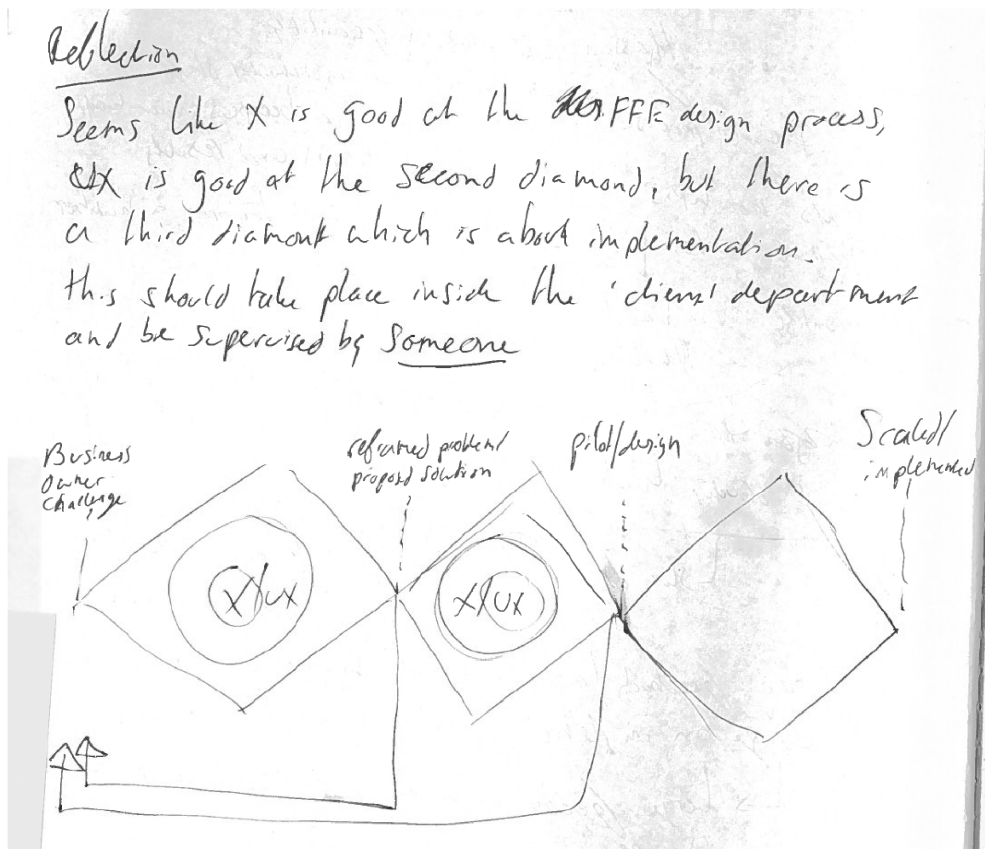 Reflection
Seems like X is good at the FFE design process,
UX is good at the second diamond, but there is
a third diamont which is about implementation.
this should take place inside the 'client' department
and be supervised by Someone
Business
Owner
Challenge
reframed problem/
proposed solution
pilot/design
Scaled/
implemented
X/UX
X/UX